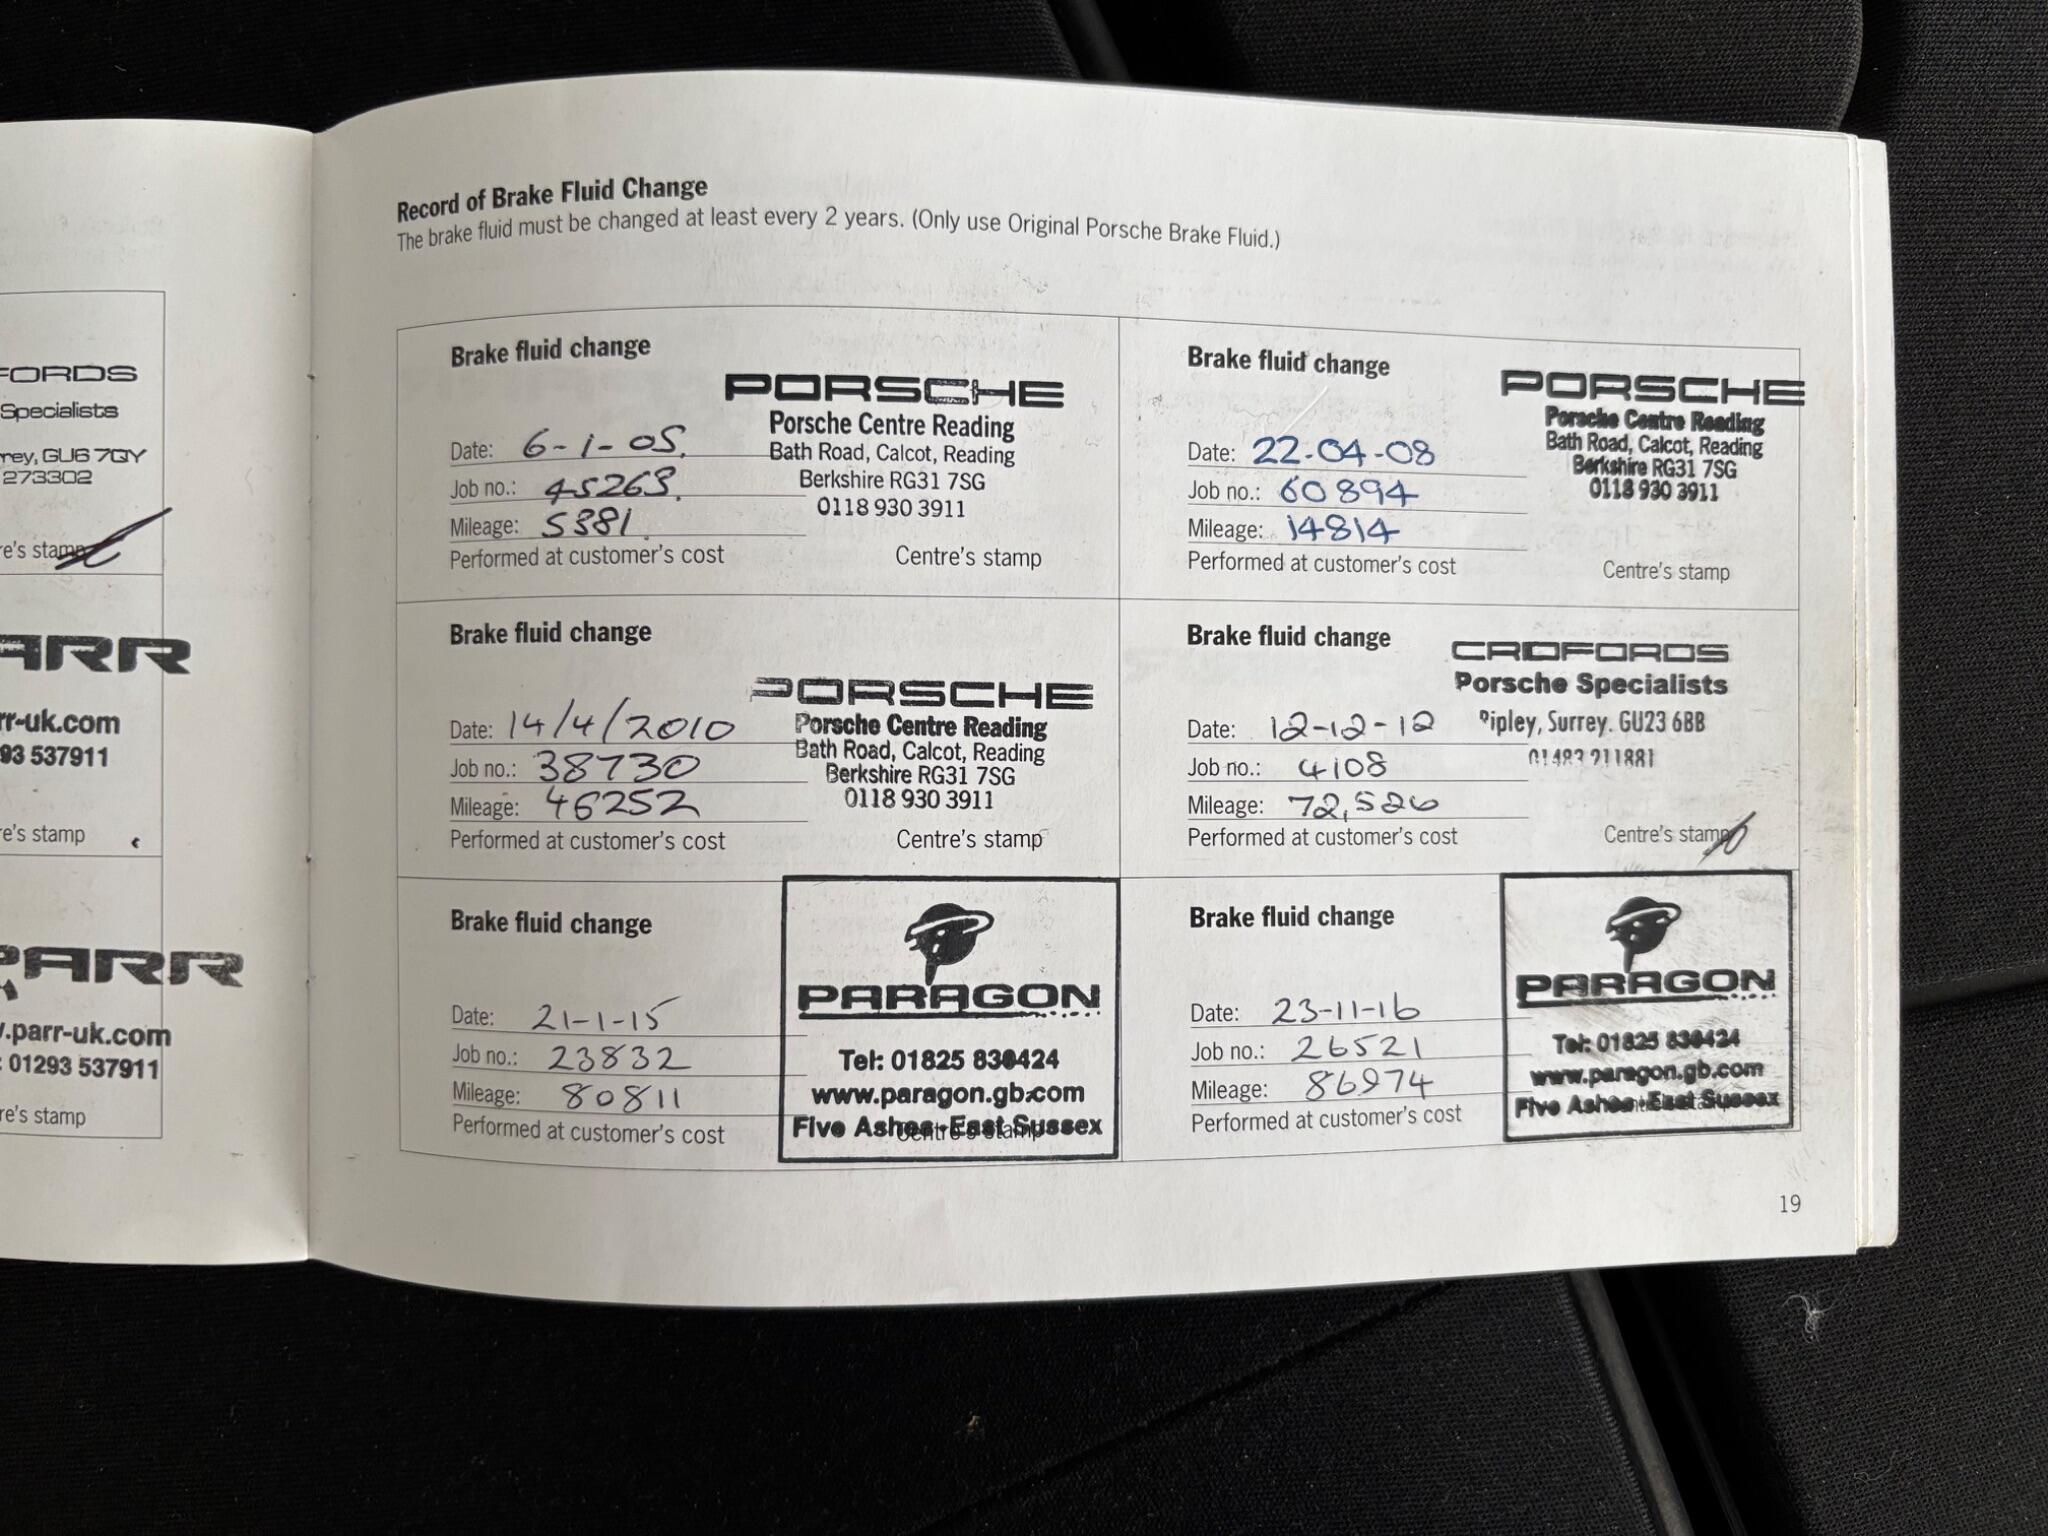 FORDS
Specialists
rey, GU6 7QY
273302
re's stamp
ARR
rr-uk.com
93 537911
re's stamp
PARR
.parr-uk.com
: 01293 537911
re's stamp
Record of Brake Fluid Change
The brake fluid must be changed at least every 2 years. (Only use Original Porsche Brake Fluid.)
Brake fluid change
PORSCHE
Porsche Centre Reading
Bath Road, Calcot, Reading
Berkshire RG31 7SG
0118 930 3911
Date: 6-1-05.
Job no.: 45263.
Mileage: 5381.
Performed at customer's cost
Centre's stamp
Brake fluid change
PORSCHE
Porsche Centre Reading
Bath Road, Calcot, Reading
Berkshire RG31 7SG
0118 930 3911
Date: 22-04-08
Job no.: 60894
Mileage: 14814
Performed at customer's cost
Centre's stamp
Brake fluid change
PORSCHE
Porsche Centre Reading
Bath Road, Calcot, Reading
Berkshire RG31 7SG
0118 930 3911
Date: 14/4/2010
Job no.: 38730
Mileage: 46252
Performed at customer's cost
Centre's stamp
Brake fluid change
CROFORDS
Porsche Specialists
Ripley, Surrey. GU23 6BB
01483 211881
Date: 12-12-12
Job no.: 4108
Mileage: 72,526
Performed at customer's cost
Centre's stamp
Brake fluid change
PARAGON
Tel: 01825 830424
www.paragon.gb.com
Five Ashes - East Sussex
Date: 21-1-15
Job no.: 23832
Mileage: 80811
Performed at customer's cost
Centre's stamp
Brake fluid change
PARAGON
Tel: 01825 830424
www.paragon.gb.com
Five Ashes - East Sussex
Date: 23-11-16
Job no.: 26521
Mileage: 86974
Performed at customer's cost
19